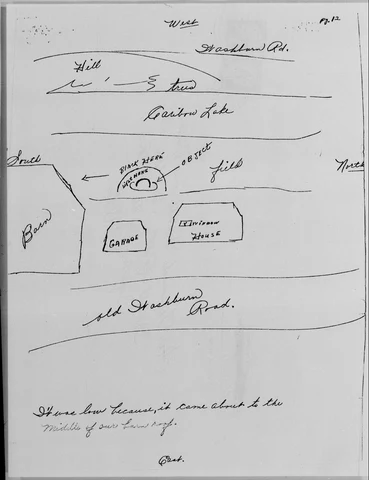 West
pg. 12
Washburn Rd.
Hill
trees
Caribou Lake
South
BLACK HERE
OBJECT
North
field
Barn
GARAGE
WINDOW
HOUSE
old Washburn
Road.
It was low because, it came about to the
Middle of our barn roof.
East.